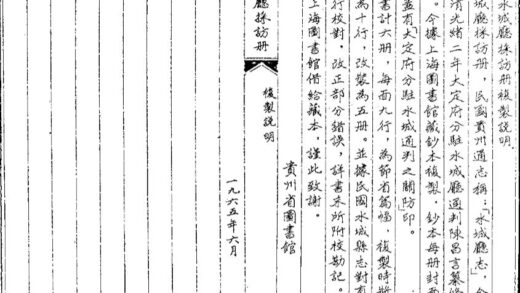 水城廳採訪册複製說明
水城廳採訪册，民國貴州通志稱：「水城廳志」，今
清光緒二年大定府分駐水城廳通判陳昌言纂修
。今據上海圖書館藏鈔本複製，鈔本每册封面
蓋有「大定府分駐水城通判之關防」印。
書計六册，每面九行，為節省篇幅，複製時將
為十行，改裝為五册。並據民國水城縣志對有
行校對，改正部分錯誤，詳書末所附校勘記。
上海圖書館借給藏本，謹此致謝。
貴州省圖書館
一九六五年六月
廳採訪册
複製說明